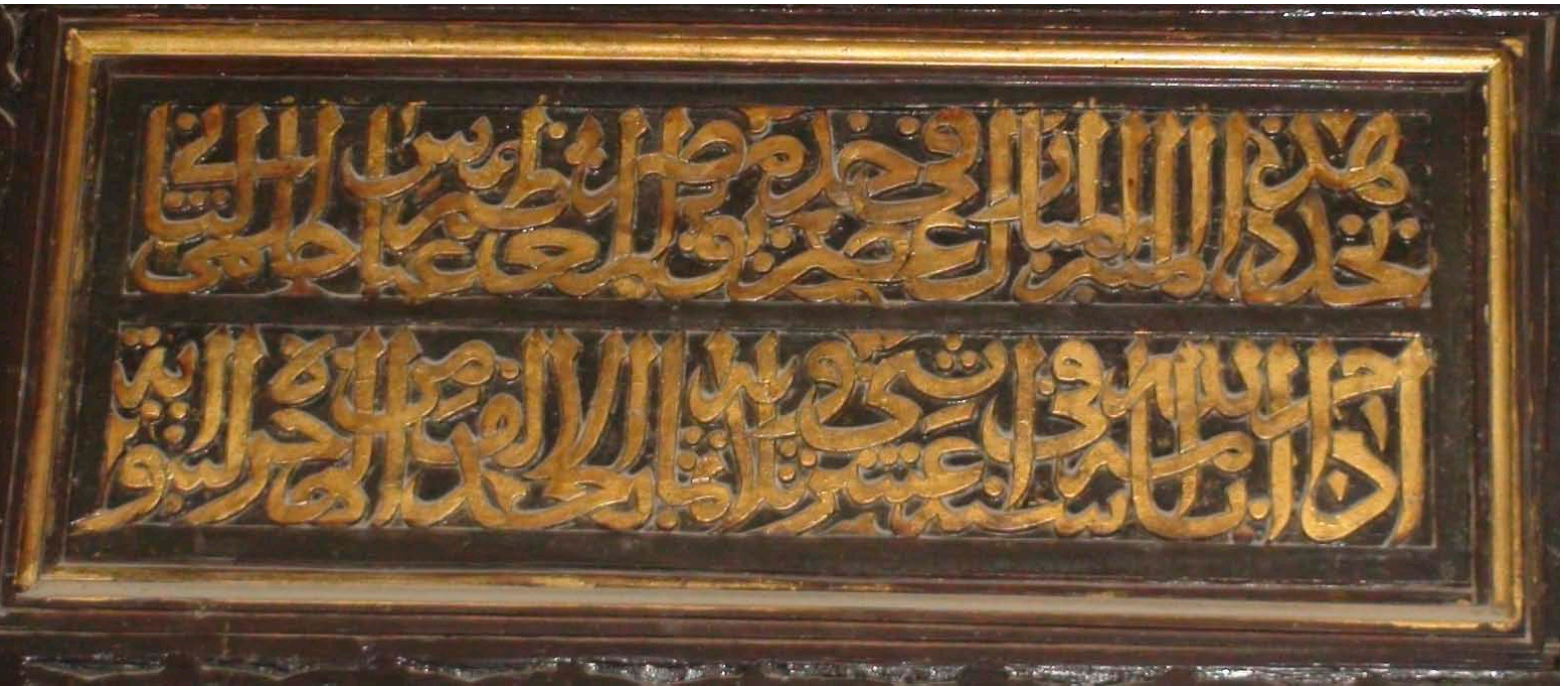 تجدد هذا المنبر المبارك في عصر خديوي مصر المعظم عباس حلمي الثاني
ادام الله ايامه في سنة عشر وثلاثمائة بعد الالف من الهجرة النبوية